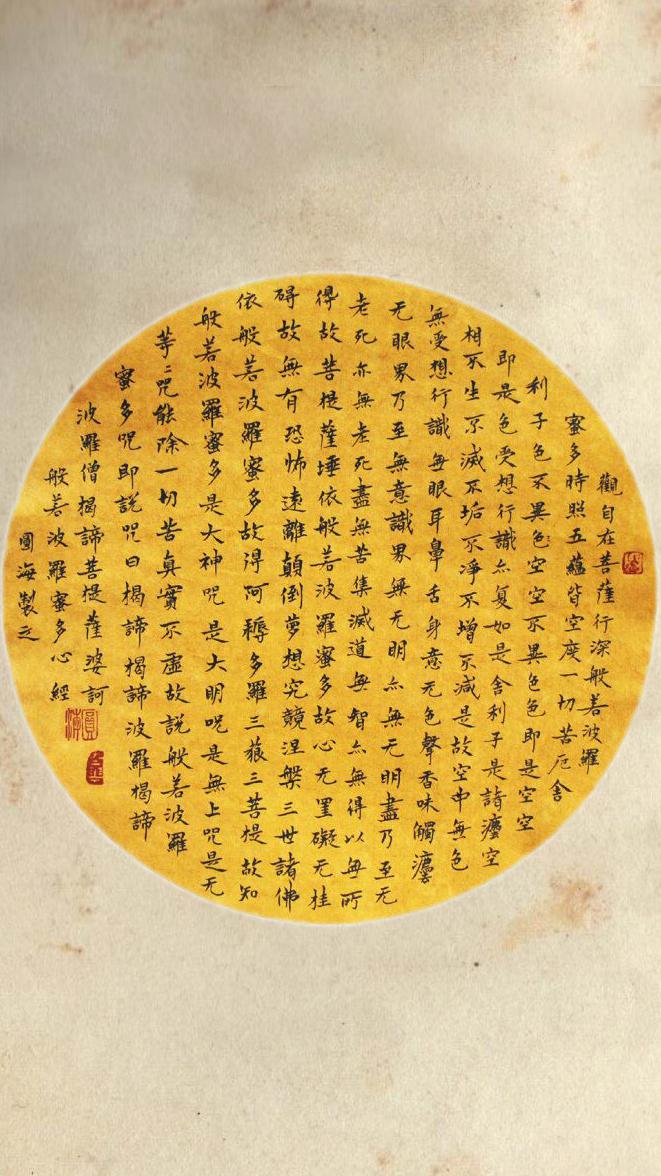 觀自在菩薩行深般若波羅
蜜多時照五蘊皆空度一切苦厄舍
利子色不異色空空不異色色即是空空
即是色受想行識亦复如是舍利子是諸灋空
相不生不滅不垢不淨不增不減是故空中無色
無受想行識無眼耳鼻舌身意无色聲香味觸灋
无眼界乃至無意識界無无明亦無无明盡乃至无
老死亦無老死盡無苦集滅道無智亦無得以無所
得故菩提薩埵依般若波羅蜜多故心无罣礙无挂
碍故無有恐怖遠離顛倒夢想究競涅槃三世諸佛
依般若波羅蜜多故得阿耨多羅三藐三菩提故知
般若波羅蜜多是大神咒是大明咒是無上咒是无
等〻咒能除一切苦真實不虛故説般若波羅
蜜多咒即說咒曰揭諦揭諦波羅揭諦
波羅僧揭諦菩提薩婆訶
般若波羅蜜多心經
圓海製之
圓海